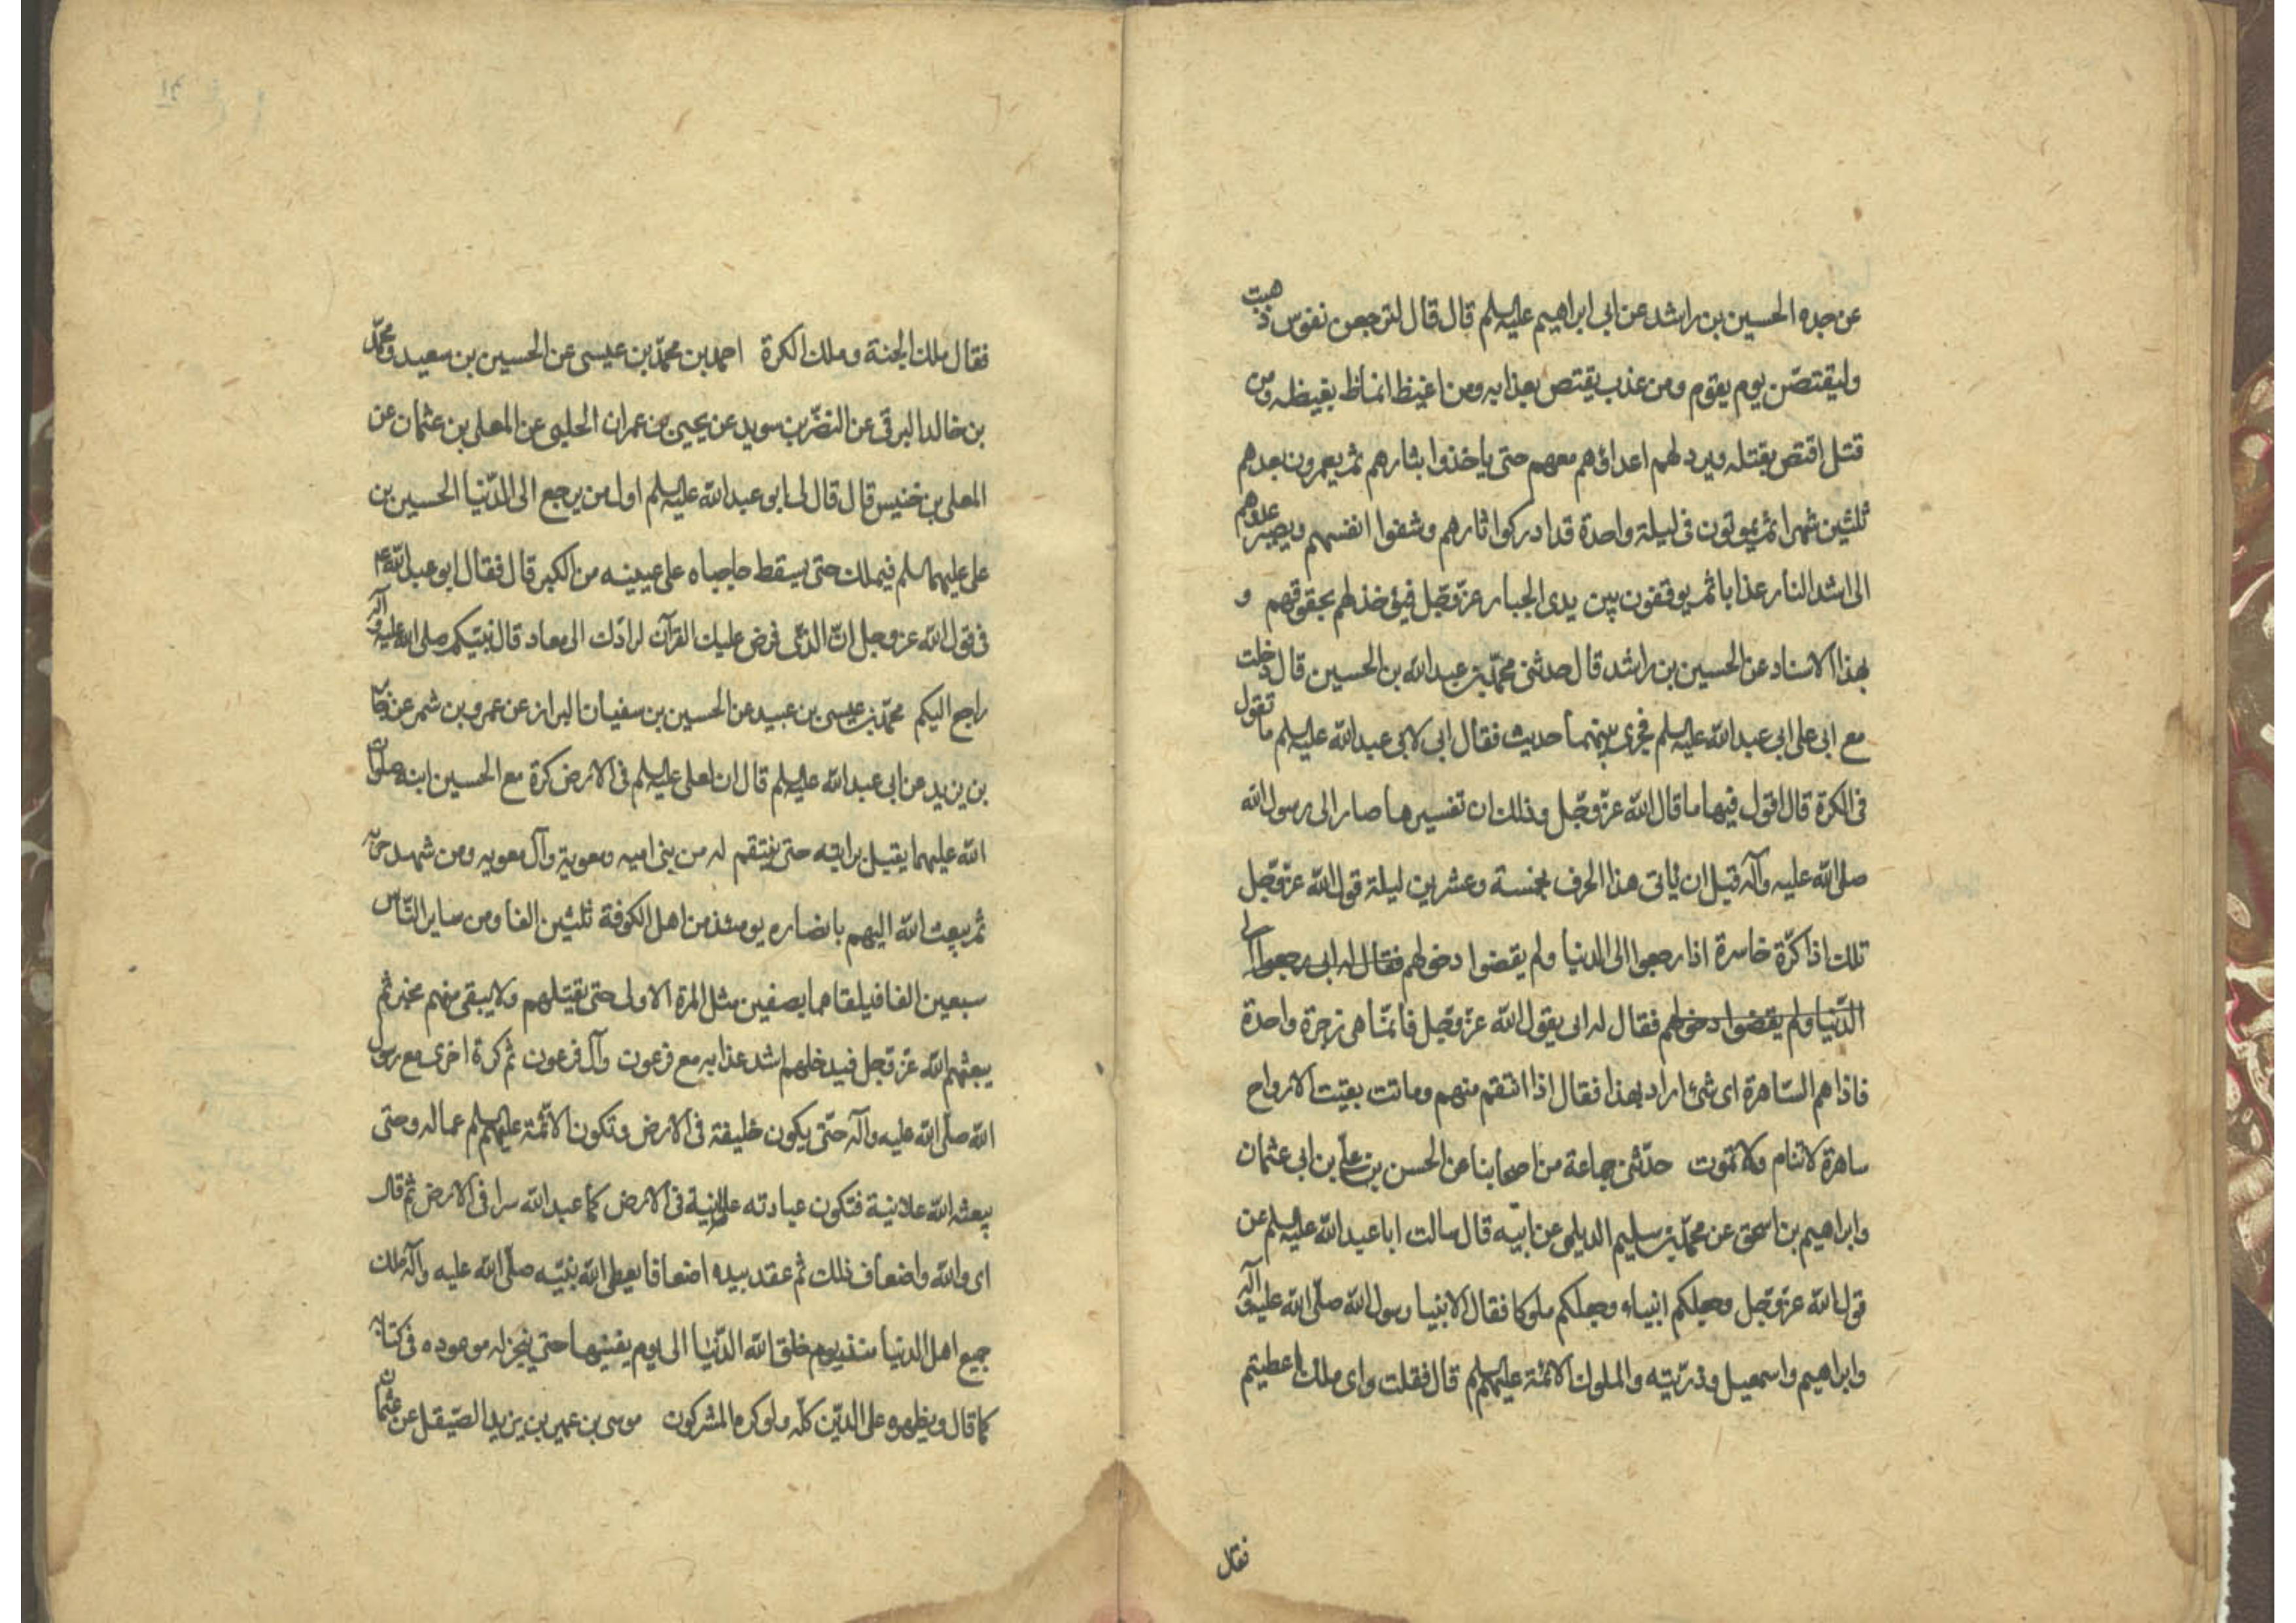 عن جده الحسين بن راشد عن ابى ابراهيم عليه السلم قال قال لترجعن نفوس ذهبت
وليقتصّن يوم يقوم ومن عذب يقتص بعذابه ومن اغيظ اغاظ بغيظه ومن
قتل اقتص بقتله ويرد لهم اعداؤهم معهم حتى ياخذوا بثارهم ثم يعمرون بعدهم
ثلثين شهرا ثم يموتون فى ليلة واحدة قد ادركوا ثارهم وشفوا انفسهم ويصير عدوهم
الى اشد النار عذابا ثم يوقفون بين يدى الجبار عزّ وجّل فيؤخذ لهم بحقوقهم و
بهذا الاسناد عن الحسين بن راشد قال حدثنى محمّد بن عبد الله بن الحسين قال دخلت
مع ابى على ابى عبد الله عليه السلم فجرى بينهما حديث فقال ابى لابى عبد الله عليه السلم ما تقول
فى الكرة قال اقول فيها ما قال الله عزّ وجّل وذلك ان تفسيرها صار الى رسول الله
صلى الله عليه وآله قبل ان ياتى هذا الحرف بخمسة وعشرين ليلة قول الله عزّ وجّل
تلك اذا كرّة خاسرة اذا رجعوا الى الدنيا ولم يقضوا دخولهم فقال له ابى رجعوا الى
الدّنيا ولم يقضوا دخولهم فقال له ابى يقول الله عزّ وجّل فانّما هى زجرة واحدة
فاذا هم السّاهرة اى شئ اراد بهذا فقال اذا انتقم منهم وماتت بقيّت الارواح
ساهرة لا تنام ولا تموت حدّثنى جماعة من اصحابنا عن الحسن بن علىّ بن ابى عثمان
وابراهيم بن اسحق عن محمّد بن سليم الديلمى عن ابيه قال سالت ابا عبد الله عليه السلم عن
قول الله عزّ وجّل وجعلكم انبياء وجعلكم ملوكا فقال الانبيا رسول الله صلّى الله عليه وآله
وابراهيم واسمعيل وذرّيته والملوك الائمّة عليهم السلم قال فقلت واى ملك اعطيتم
فقال
فقال ملك الجنة وملك الكرة احمد بن محمّد بن عيسى عن الحسين بن سعيد ومحمّد
بن خالد البرقى عن النضّر بن سويد عن يحيى بن عمران الحلبى عن المعلى بن عثمان عن
المعلى بن خنيس قال قال لى ابو عبد الله عليه السلم اول من يرجع الى الدّنيا الحسين بن
على عليهما السلم فيملك حتى يسقط حاجباه على عينيه من الكبر قال فقال ابو عبد الله ع
فى قول الله عز وجل انّ الذّى فرض عليك القرآن لرادّك الى معاد قال نبيّكم صلى الله عليه وآله
راجع اليكم محمّد بن عيسى بن عبيد عن الحسين بن سفيان البراز عن عمرو بن شمر عن جابر
بن يزيد عن ابى عبد الله عليه السلم قال ان لعلى عليه السلم فى الارض كرة مع الحسين ابنه صلوات
الله عليهما يقبل برايته حتى ينتقم له من بنى اميه ومعوية وآل معويه ومن شهد حربه
ثم يبعث الله اليهم بانصاره يومئذ من اهل الكوفة ثلثين الفا ومن ساير النّاس
سبعين الفا فيلقاهما بصفين مثل المرّة الاولى حتى يقتلهم ولا يبقى منهم مخبر ثم
يبعثهم الله عزّ وجل فيدخلهم اشد عذابه مع فرعون وآل فرعون ثم كرة اخرى مع رسول
الله صلّى الله عليه وآله حتّى يكون خليفة فى الارض وتكون الائمّة عليهم السلم عماله وحتى
يبعثه الله علانية فتكون عبادته علانية فى الارض كما عبد الله سرا فى الارض ثم قال
اى والله واضعاف ذلك ثم عقد بيده اضعافا يعطى الله نبيّه صلّى الله عليه وآله ملك
جميع اهل الدنيا منذ يوم خلق الله الدّنيا الى يوم يفنيها حتى ينجز له موعوده فى كتابه
كما قال ويظهره على الدّين كلّه ولو كره المشركون موسى بن عمير بن يزيد الصّيقل عن عثمان